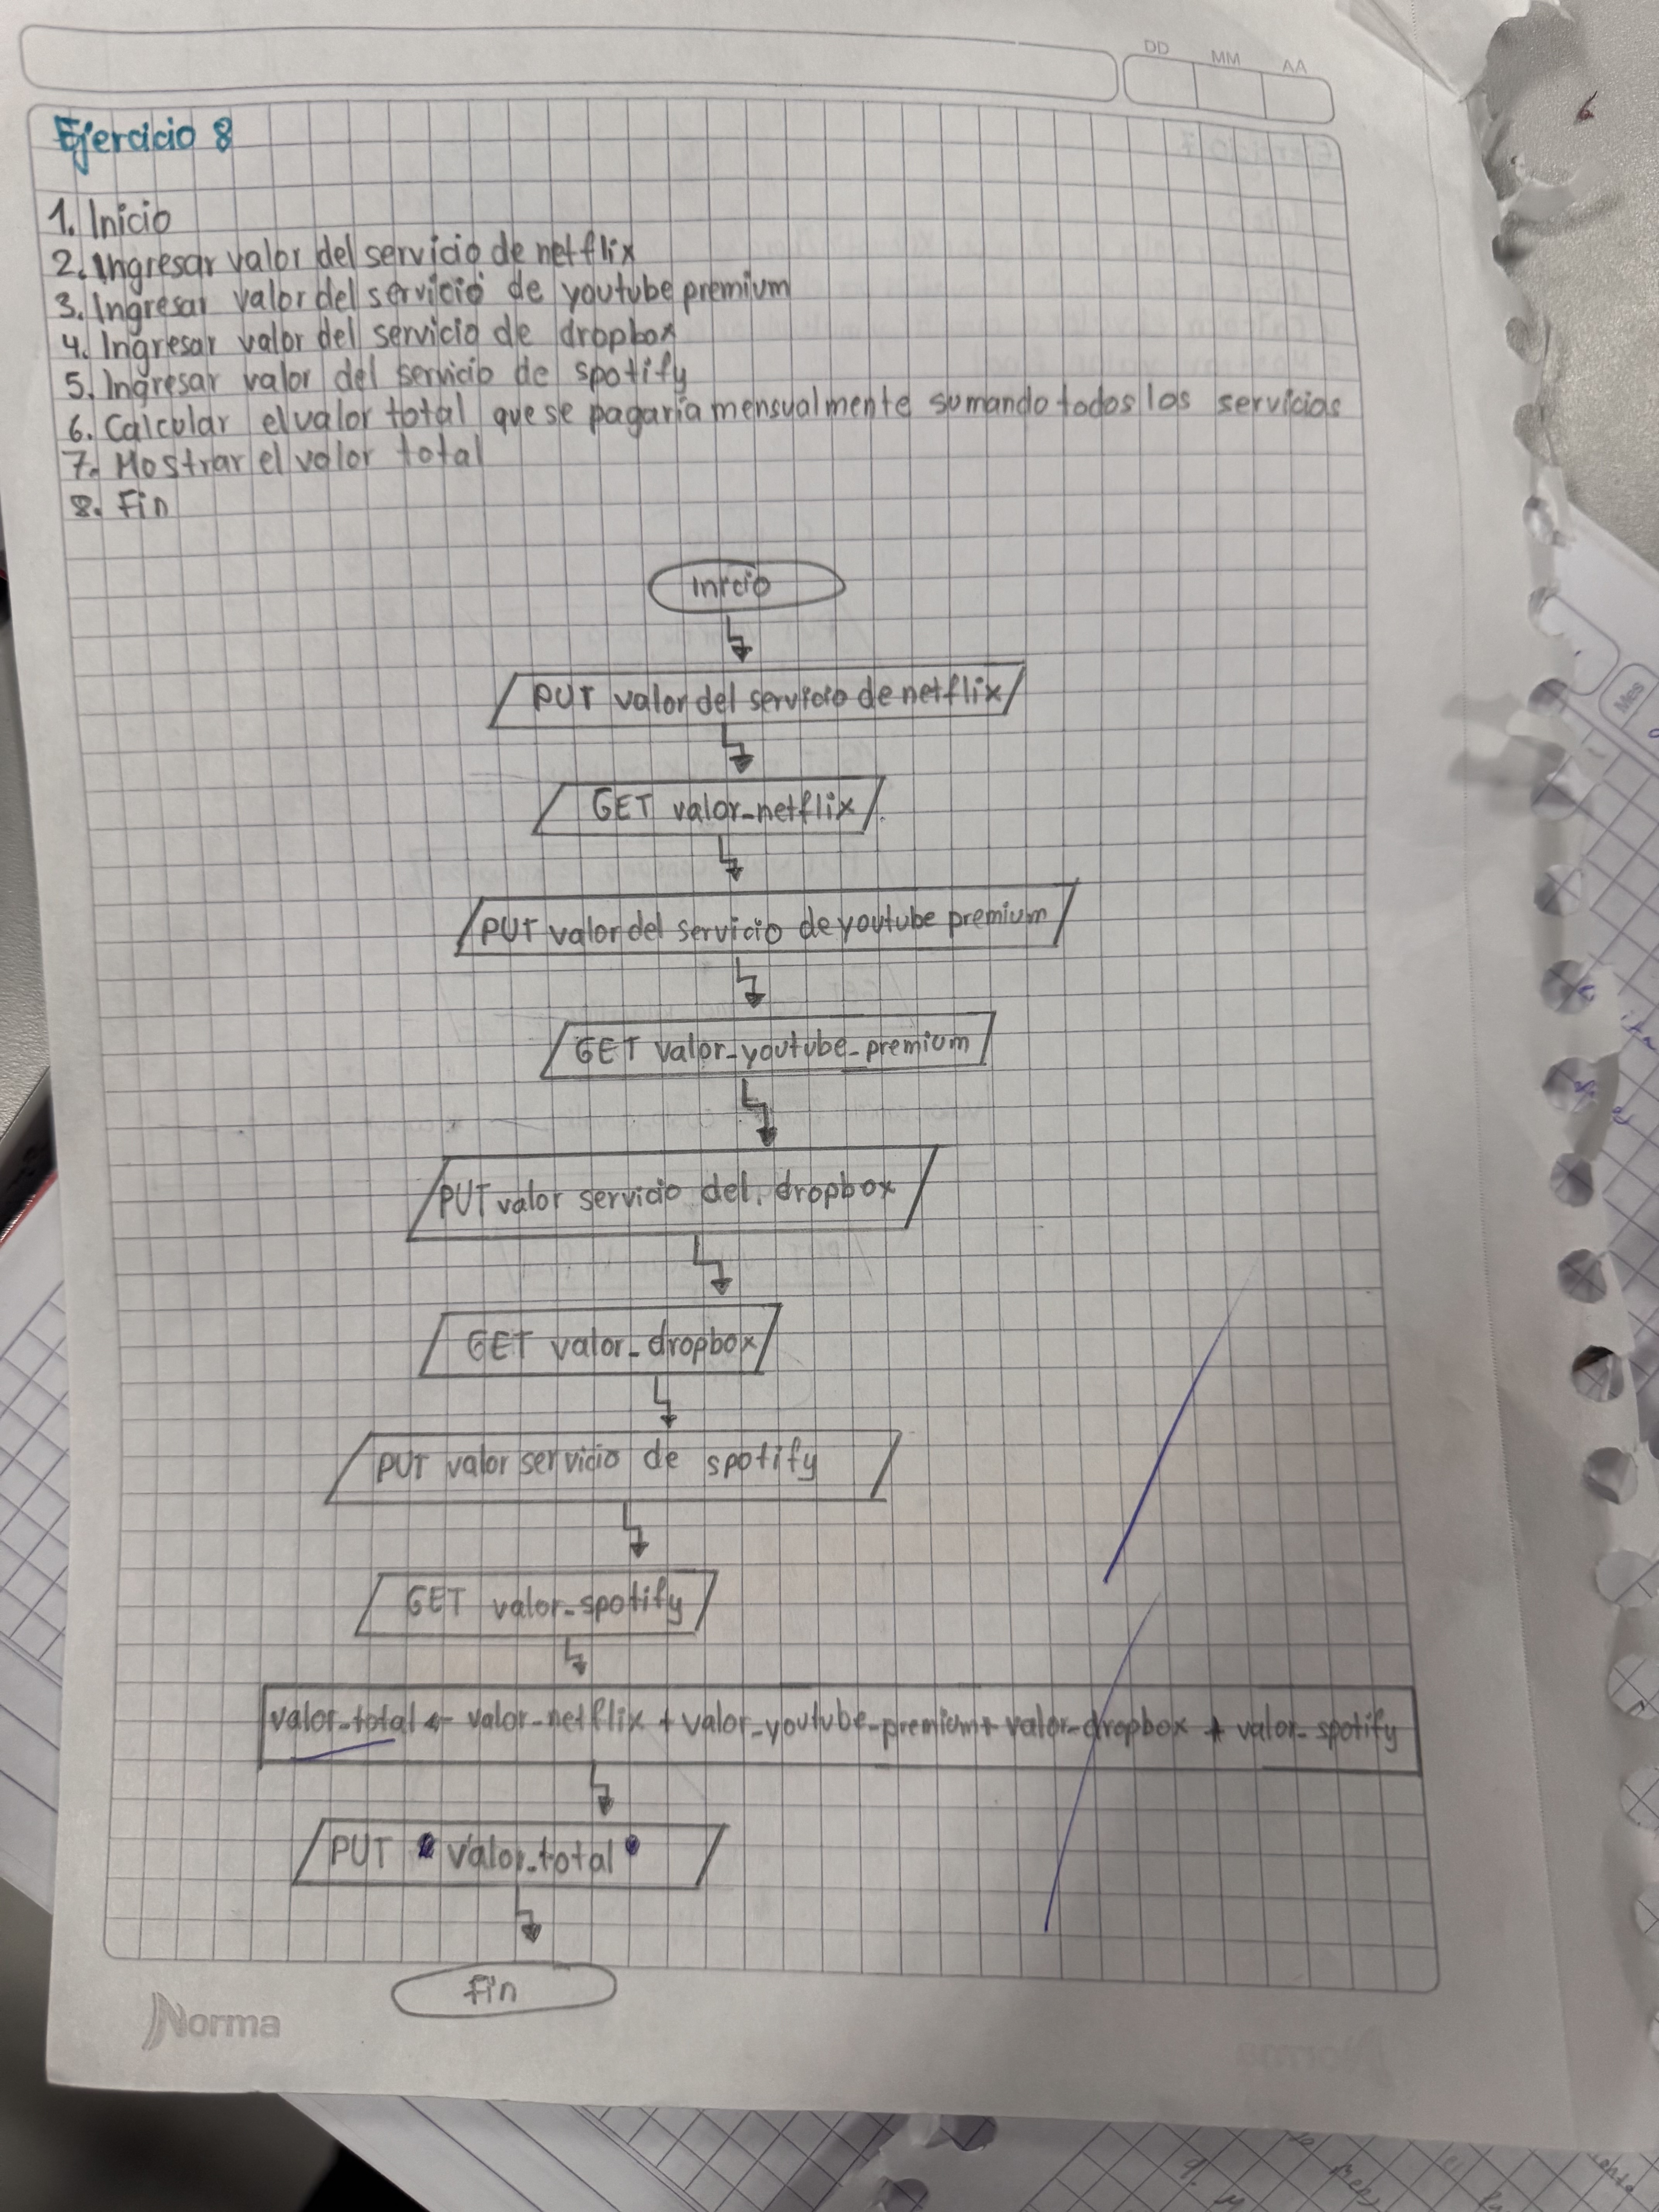 DD MM AA
Ejercicio 8
1. Inicio
2. Ingresar valor del servicio de netflix
3. Ingresar valor del servicio de youtube premium
4. Ingresar valor del servicio de dropbox
5. Ingresar valor del servicio de spotify
6. Calcular el valor total que se pagaría mensualmente sumando todos los servicios
7. Mostrar el valor total
8. Fin
Inicio
PUT valor del servicio de netflix
GET valor_netflix
PUT valor del servicio de youtube premium
GET valor_youtube_premium
PUT valor servicio del dropbox
GET valor_dropbox
PUT valor servicio de spotify
GET valor_spotify
valor_total ← valor_netflix + valor_youtube_premium + valor_dropbox + valor_spotify
PUT valor_total
fin
Norma
Mes